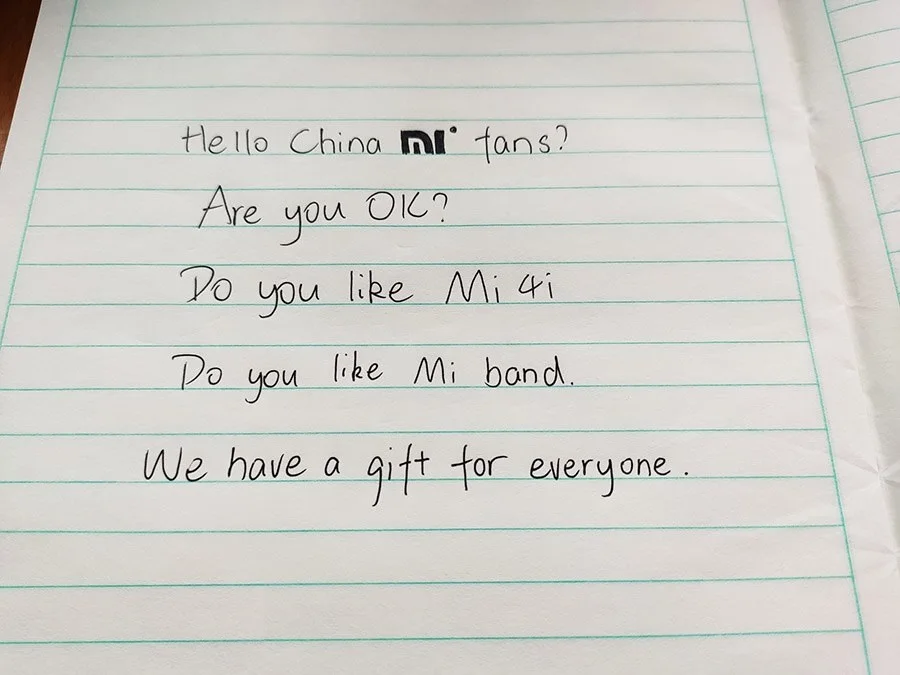 Hello China mi fans?
Are you OK?
Do you like Mi 4i
Do you like Mi band.
We have a gift for everyone.